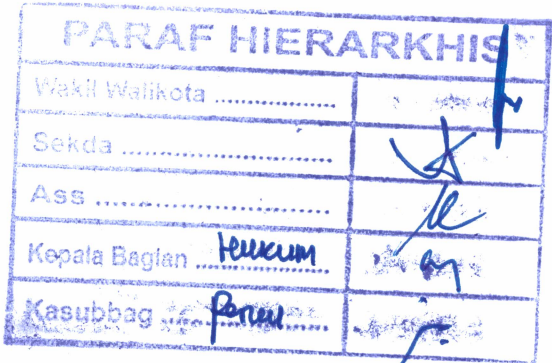 PARAF HIERARKHIS
Wakil Walikota ....................
Sekda ....................
Ass ....................
Kepala Bagian .... Hukum
Kasubbag ....